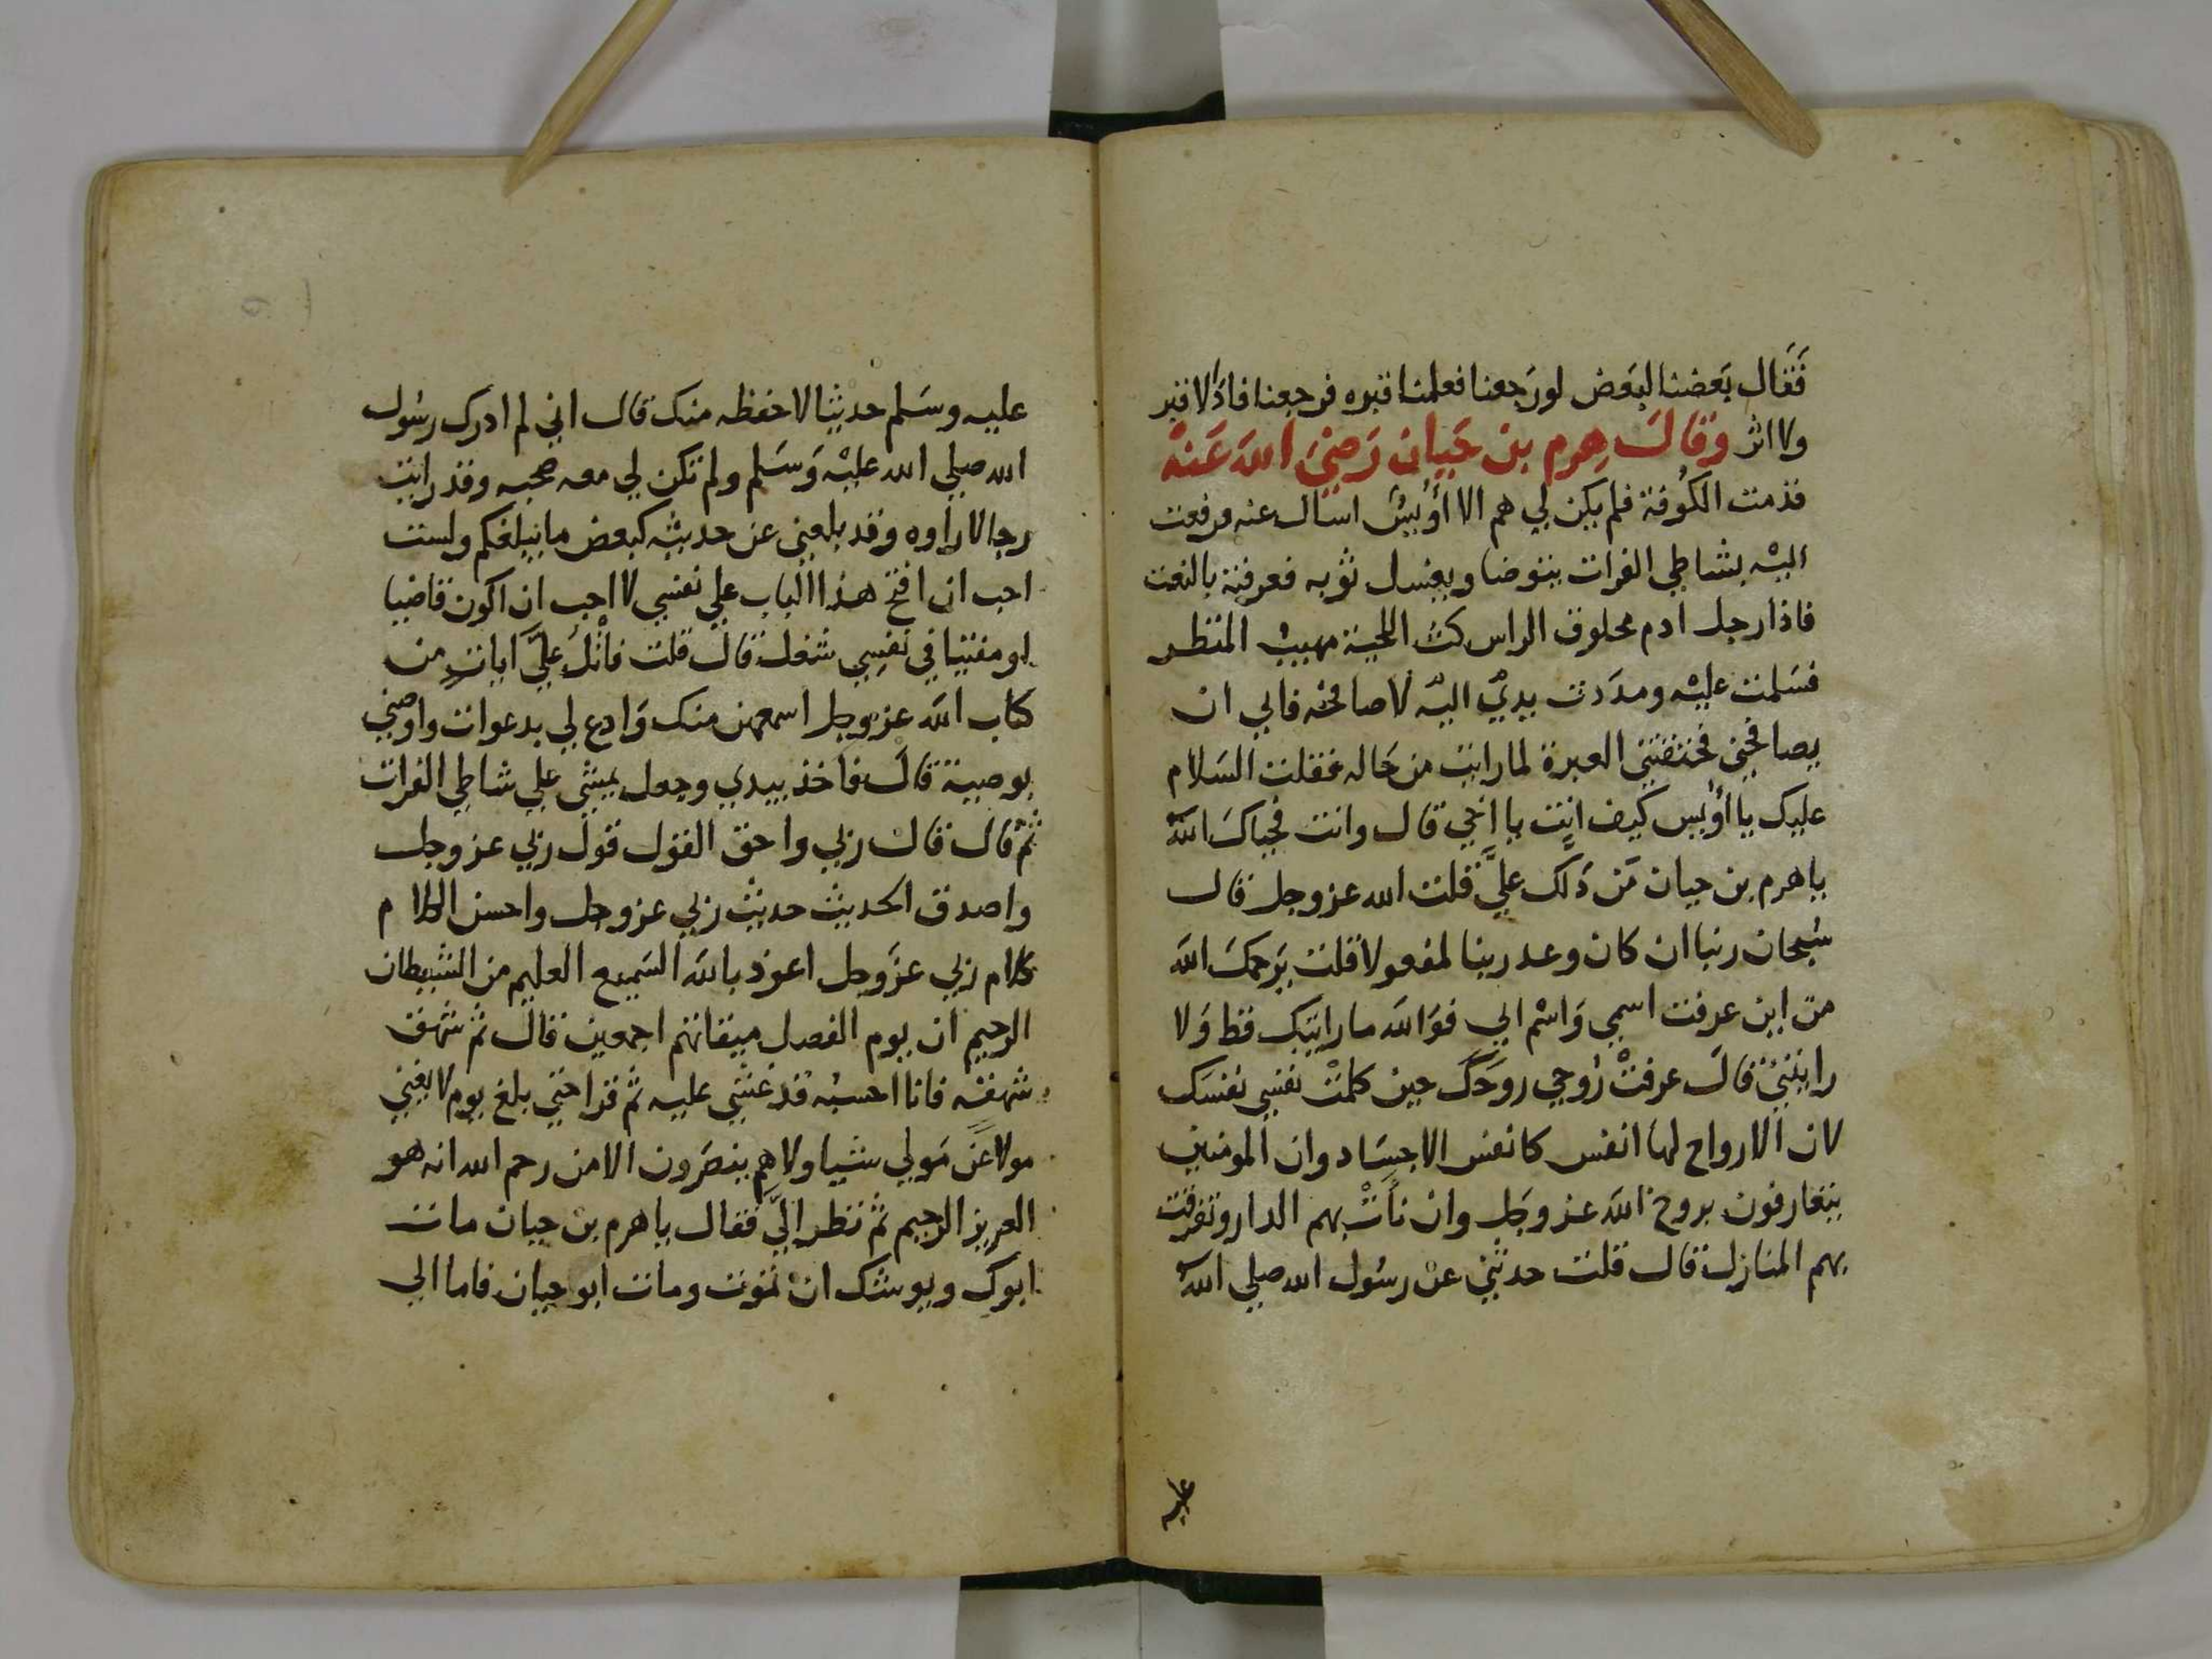 فَقَال بَعضنا لبَعض لورَجعنا فعلمنا قبره فرجعنا فاذا لا قبر
ولا اثر وقالَ هِرم بن حَيان رَضيَ اللهَ عَنهُ
قدمت الكُوفة فلم يكن لي هم الا أُوَيسْ اسأل عنه فرفعت
اليْه بشاطي الفرات يتوضا ويغسل ثوبه فعرفته بالنعت
فاذا رجل ادم محلوق الراس كث اللحية مهيبْ المنظر
فسَلمت عليْه ومدَدت يديْ اليْه لاصافحه فابي ان
يصافحني فخنقتني العبرة لما رايت من حَاله فقلت السَلام
عليك يا أُوَيس كيف انت يا اخي قال وانت فحياكَ اللهَ
ياهرم بن حيان مَن دَلك عليَّ قلت الله عز وجل قال
سُبحان ربنا ان كان وعد ربنا لمفعولا قلت يَرحمكَ اللهَ
من اين عرفت اسمي وَاسْم ابي فوَاللهَ ما رايتك قط وَلا
رايتنيْ قالَ عرفتْ رُوحي روحَكَ حين كلمتْ نفسي نفسَك
لان الارواح لها انفس كانفس الاجسَاد وان المومنين
يتعارفون بروح اللهَ عز وَجَل وان نأَتْ بهم الدار وتفرقت
بهم المنازل قال قلت حدثني عنْ رسُول الله صلي اللهَ
عليه
عليه وسَلم حديثا لاحفظه منك قال اني لم ادرك رسُول
الله صلي الله عليْه وَسَلم ولم تكن لي معه صحبه وقد رايت
رجالا راوه وقد بلغني عن حديثه كبعض ما يبلغكم ولست
احب ان افتح هذا الباب علي نفسي لا احب ان اكون قاضيا
او مفتيا في نفسِي شغل قالَ قلت فاتْلُ عليَّ اياتٍ من
كتاب اللهَ عز وجل اسمعهن منك وَادع لي بدعوات واوصني
بوصية قالَ فاخذ بيدي وجعل يمشي علي شاطي الفرات
ثمْ قال قال ربي واحق القول قول ربي عز وجل
واصدق الحديث حديث ربي عز وجل واحسن الكلام
كلام ربي عزَوجل اعوذ باللهَ السَميع العليم من الشيطان
الرجيم ان يوم الفصل ميقاتهم اجمعين قال ثم شهق
شهقه فانا احسبْه قد غشي عليه ثم قرا حتي بلغ يوم لا يغني
مولا عَن مَولي شيا ولا هم ينصَرون الا من رحم الله انه هو
العزيز الرحيم ثم نظر إليَّ فقال ياهرم بن حيان مات
ابوك ويوشك ان تموت ومات ابو حيان فاما الي